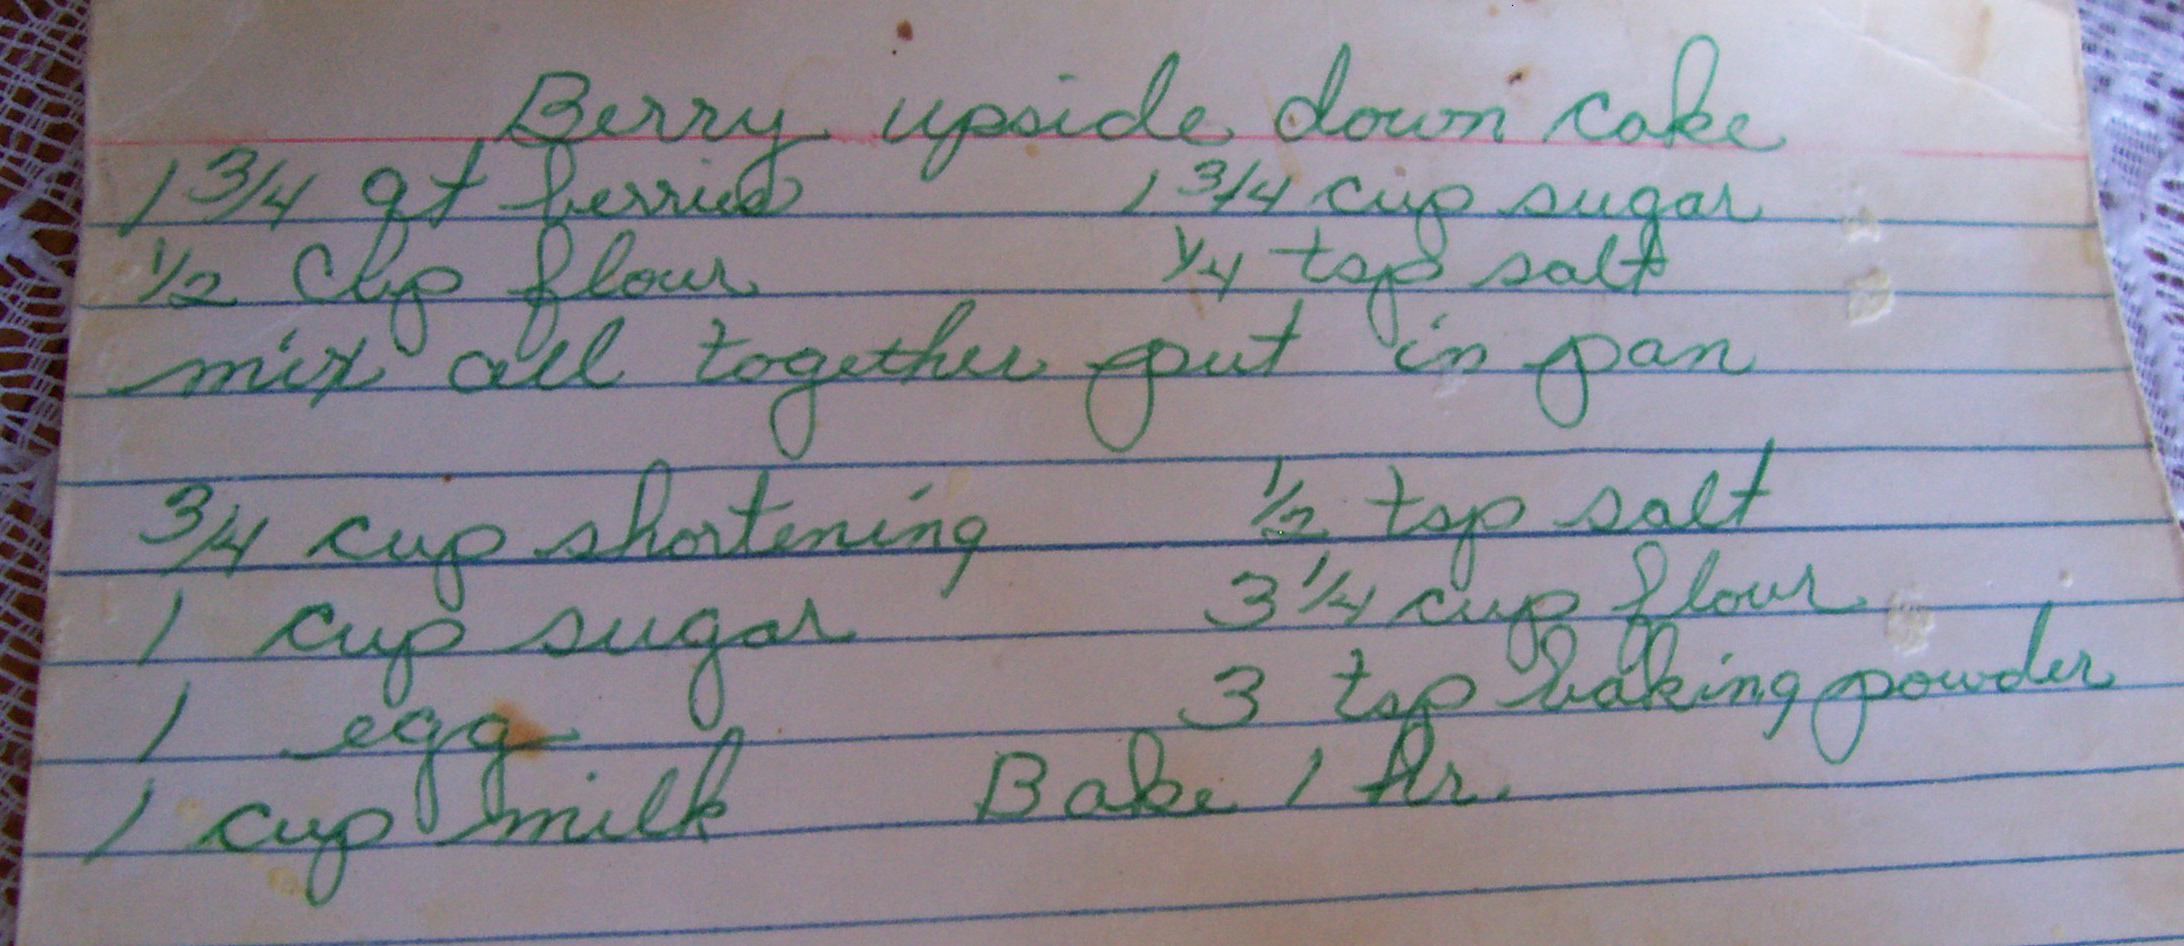 Berry upside down cake
1 3/4 qt berries 1 3/4 cup sugar
1/2 cup flour 1/4 tsp salt
mix all together put in pan
3/4 cup shortening 1/2 tsp salt
1 cup sugar 3 1/4 cup flour
1 egg 3 tsp baking powder
1 cup milk Bake 1 hr.